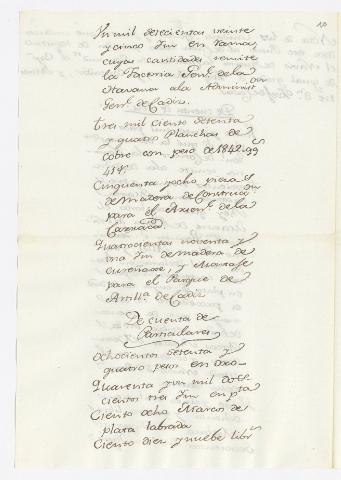 Un mil doscientas veinte
y cinco Id. en ramas
cuyas cantidades remite
la Factoria Genl. de la
Havana a la Administ.on
Genl. de Cadiz.
Tres mil ciento setenta
y quatro Planchas de
cobre con peso de 1842 qq.s
41 lb.
Cinquenta y ocho piezas
de Madera de Construcn.
para el Arsenl. de la
Carraca
Quatrocientas noventa y
una Id. de madera de
cureñaxe, y Montaje
para el Parque de
Artill.a de Cadiz
De cuenta de
Particulares
Ochocientos setenta y
quatro pesos en oro
Quarenta y un mil doscientos tres Id. en pta.
Ciento ocho Marcos de
plata labrada
Ciento diez y nuebe libr.s